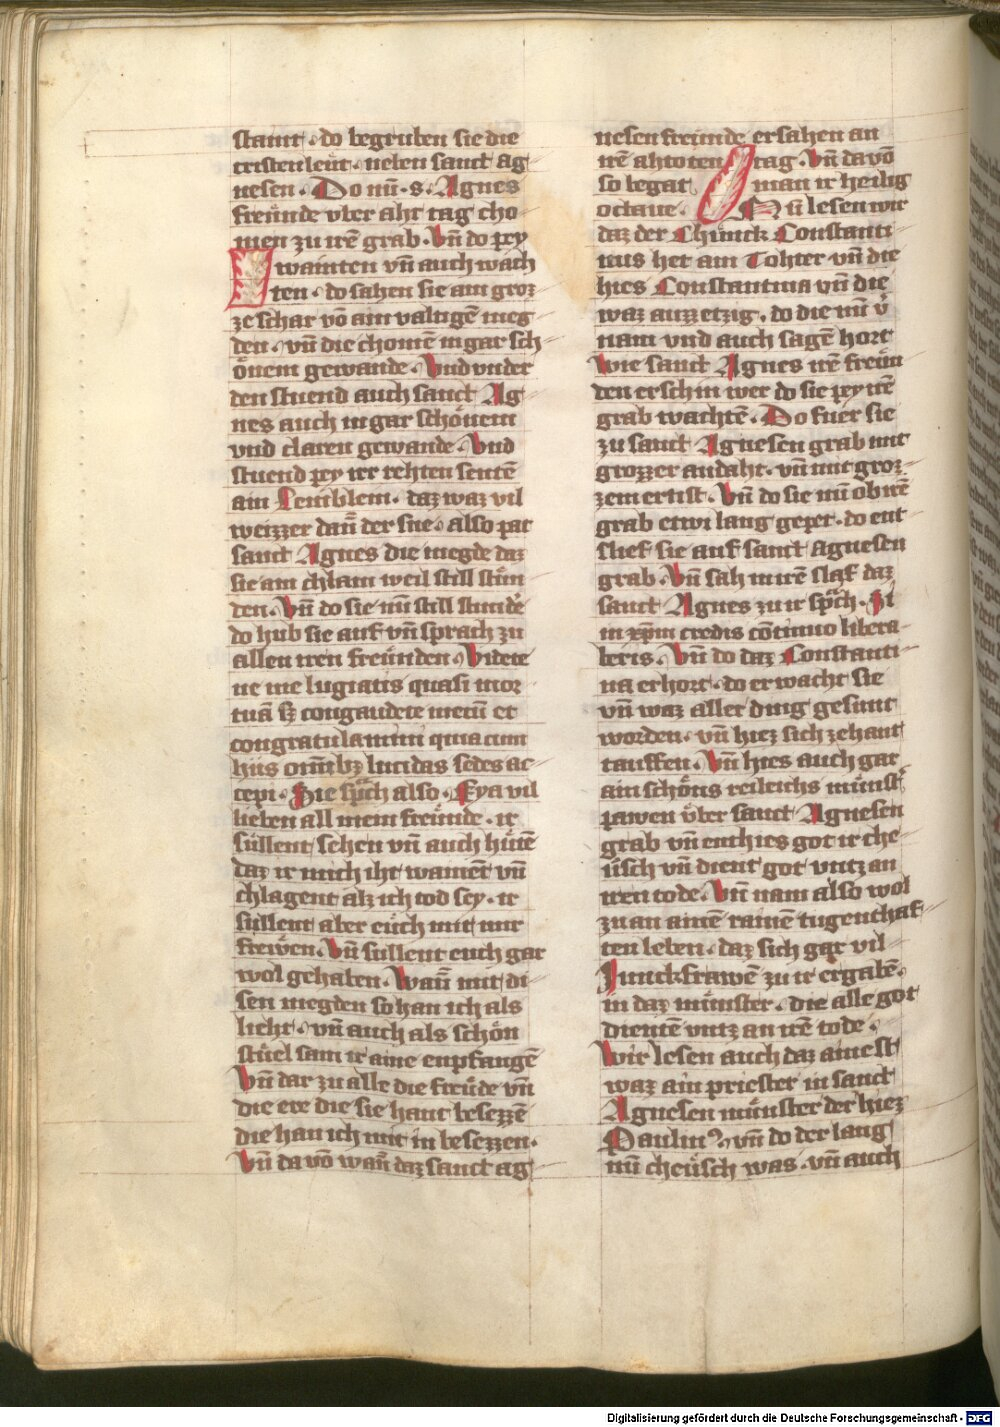 staint · do begruben sie die
cristenleüt · neben sanct ag
nesen · Do nu̅ · s · Agnes
freünde vber aht tag cho
men zu ire̅ grab · Vn̅ do pey
wainten vn̅ auch wach
ten · do sahen sie ain groz
ze schar vo̅ ain valtige̅ meg
den · vn̅ die chome̅ in gar sch
önem gewande · Vnd vnder
den stuend auch sanct Ag
nes auch in gar schönem
vnd claren gewande · Vnd
stuend pey irer rehten seite̅
ain Lemblein · daz waz vil
weizzer dan̅ der sne · also pat
sanct Agnes die megde daz
sie ain chlain weil still stün
den · Vn̅ do sie nu̅ still stunde̅
do hub sie auf vn̅ sprach zu
allen iren freünden · Videte
ne me lugiatis quasi mor
tua̅ sʒ congaudete mecu̅ et
congratulamini quia cum
hiis om̅ibʒ lucidas sedes ac
cepi · Sie sp̅ch also · Eya vil
lieben all mein freünde · ir
süllent sehen vn̅ auch hüte̅
daz ir mich iht wainet vn̅
chlagent alz ich tod sey · ir
süllent aber eüch mit mir
frewen · Vn̅ sullent euch gar
wol gehaben · Wan̅ mit di
sen megden so han ich als
lieht · vn̅ auch als schön
stüel sam ir aine enpfange̅
Vn̅ dar zu alle die freüde vn̅
die ere die sie hant besezze̅
die han ich mit in besezzen ·
Vn̅ da vo̅ wan̅ daz sanct ag
nesen freunde ersahen an
ire̅ ahtoten tag · Vn̅ da vo̅
so begat man ir heilig
octaue · Nu̅ lesen wir
daz der Chünck Constanti
nus het ain Tohter vn̅ die
hies Constantina vn̅ die
waz auzzetzig · do die nu̅ v̅
nam vnd auch sage̅ hort
wie sanct Agnes ire̅ freün
den erschin wer do sie pey ire̅
grab wachte̅ · Do fuer sie
zu sanct Agnesen grab mit
grozzer andaht · vn̅ mit groz
zem ernst · Vn̅ do sie nu̅ ob ire̅
grab etwi lang gepet · do ent
slief sie auf sanct agnesen
grab · Vn̅ sah in ire̅ slaf daz
sanct Agnes zu ir sp̅ch · Si
in xp̅m credis co̅tinuo libera
beris · Vn̅ do daz Constanti
na erhort · do erwacht sie
vn̅ waz aller ding gesunt
worden · vn̅ hiez sich zehant
tauffen · Vn̅ hies auch gar
ain schöns reileichs münst̅
pawen über sanct Agnesen
grab vn̅ enthies got ir che
üsch vn̅ dient got vntz an
iren tode · Vn̅ nam also wol
zu an aine̅ raine̅ tugenthaf
ten leben · daz sich gar vil
Junckfrawe̅ zu ir ergabe̅ ·
in daz münster · die alle got
diente̅ vntz an ire̅ tode ·
Wir lesen auch daz ainest
waz ain priester in sanct
Agnesen münster der hiez
Paulin⁹ · vn̅ do der lang
nu̅ cheüsch was · vn̅ auch
Digitalisierung gefördert durch die Deutsche Forschungsgemeinschaft - DFG